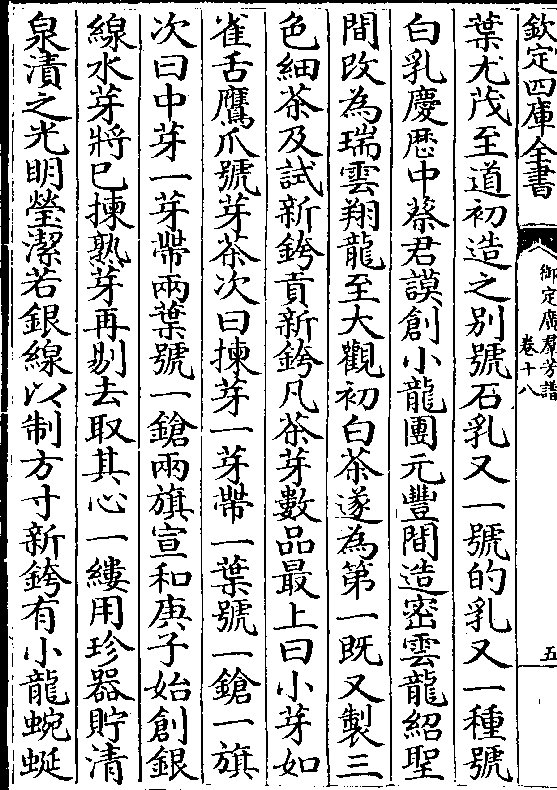 欽定四庫全書
御定廣羣芳譜
卷十八
五
葉尤茂至道初造之别號石乳又一號的乳又一種號
白乳慶歴中蔡君謨創小龍團元豐間造密雲龍紹聖
間改為瑞雲翔龍至大觀初白茶遂為第一既又製三
色細茶及試新銙貢新銙凡茶芽數品最上曰小芽如
雀舌鷹爪號芽茶次曰揀芽一芽帶一葉號一鎗一旗
次曰中芽一芽帶兩葉號一鎗兩旗宣和庚子始創銀
線水芽將已揀熟芽再剔去取其心一縷用珍器貯清
泉漬之光明瑩潔若銀線以制方寸新銙有小龍蜿蜒